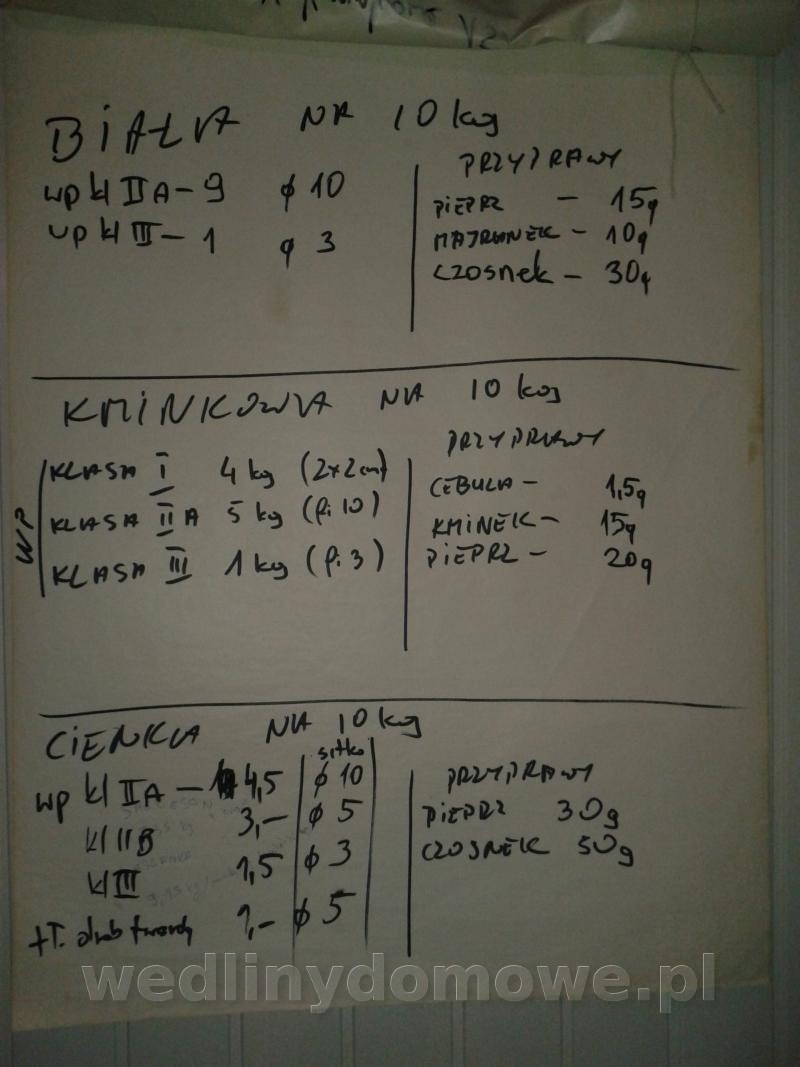 BIAŁA NA 10 kg
wp kl II A - 9 ϕ 10
wp kl III - 1 ϕ 3
PRZYPRAWY
PIEPRZ - 15g
MAJRANEK - 10g
CZOSNEK - 30g
KMINKOWA NA 10 kg
WP
KLASA I 4 kg (2x2cm)
KLASA II A 5 kg (fi 10)
KLASA III 1 kg (fi 3)
PRZYPRAWY
CEBULA - 1,5g
KMINEK - 15g
PIEPRZ - 20g
CIENKA NA 10 kg
sitko
wp kl II A - 4,5 ϕ 10
kl II B 3,- ϕ 5
kl III 1,5 ϕ 3
tł. drob twardy 1,- ϕ 5
PRZYPRAWY
PIEPRZ 30g
CZOSNEK 50g
wedlinydomowe.pl